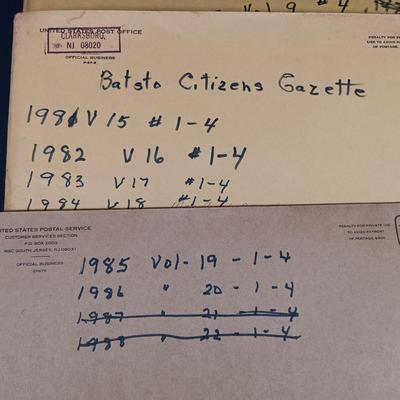 Vol 9 # 4
UNITED STATES POST OFFICE
CLARKSBORO,
NJ 08020
OFFICIAL BUSINESS
PENALTY FOR PRIVATE
USE TO AVOID
OF POSTAGE,
Batsto Citizens Gazette
1981 V 15 # 1-4
1982 V 16 # 1-4
1983 V 17 # 1-4
1984 V 18 # 1-4
UNITED STATES POSTAL SERVICE
CUSTOMER SERVICES SECTION
P.O. BOX 2003
MSC SOUTH JERSEY, NJ 08031
OFFICIAL BUSINESS
PENALTY FOR PRIVATE USE
TO AVOID PAYMENT
OF POSTAGE, $300
1985 Vol- 19 - 1-4
1986 " 20 - 1-4
1987 " 21 - 1-4
1988 " 22 - 1-4